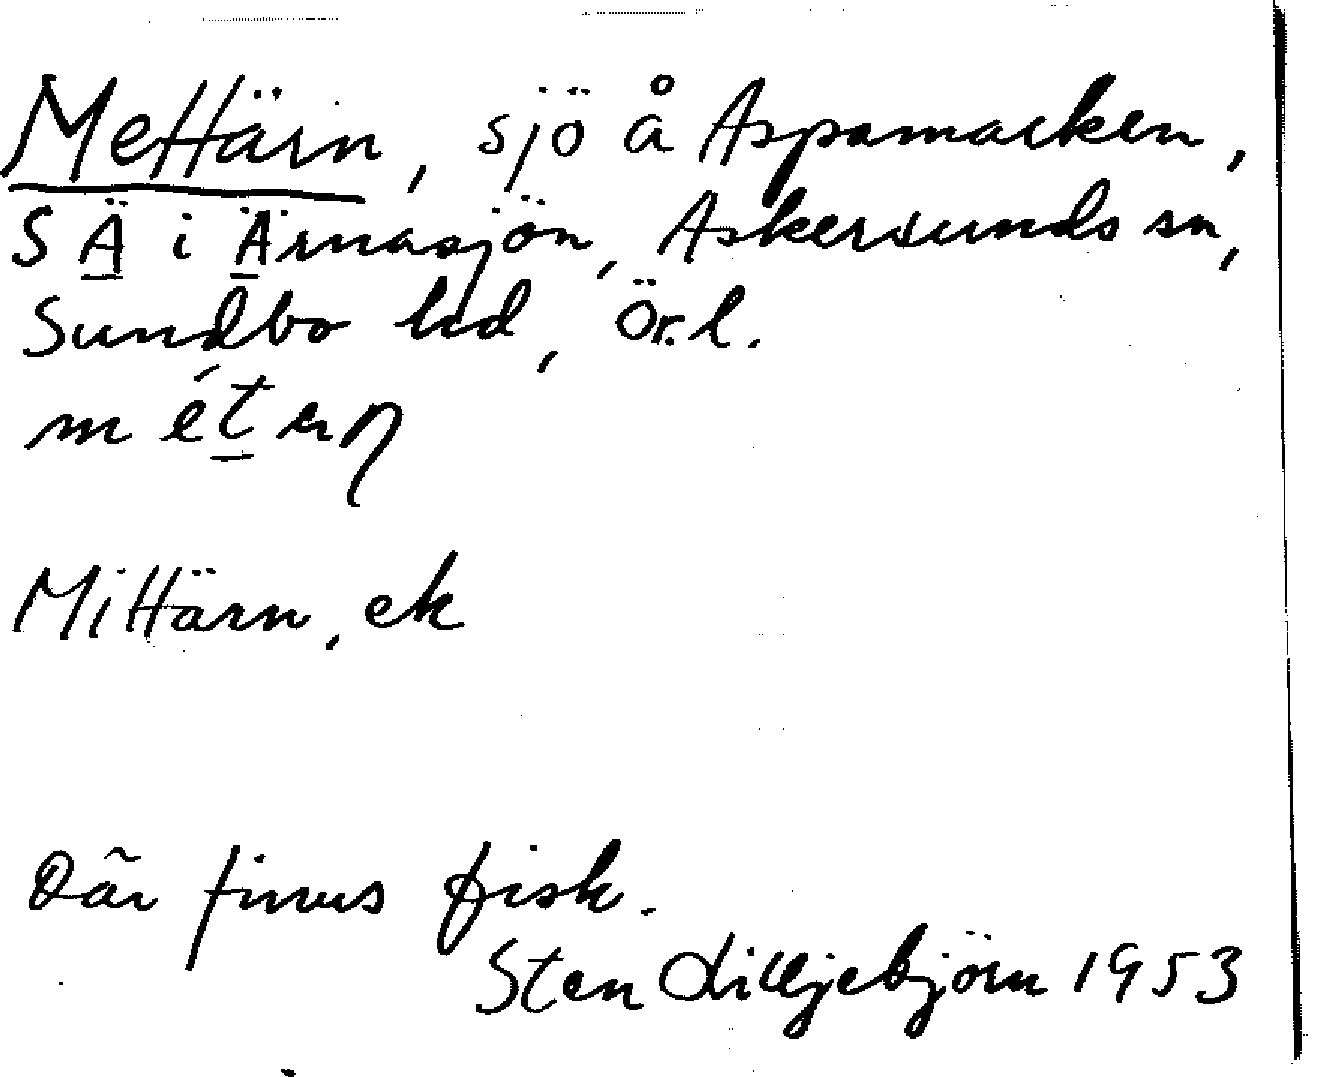 Mettärn, sjö å Aspamarken,
SÄ i Ärnasjön, Askersunds sn,
Sundbo hd, Ör.l.
méteɳ
Mittärn, ek
Där finns fisk.
Sten Lilljebjörn 1953